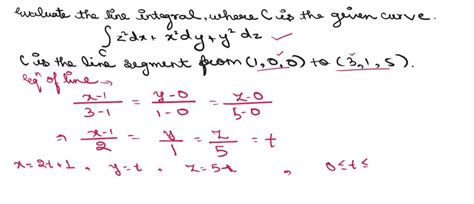 Evaluate the line integral, where C is the given curve.
∫ z²dx + x²dy + y² dz ✓
C is the line segment from (1,0,0) to (3,1,5).
Eqⁿ of line →
x-1/3-1 = y-0/1-0 = z-0/5-0
⇒ x-1/2 = y/1 = z/5 = t
x=2t+1, y=t, z=5t, 0≤t≤